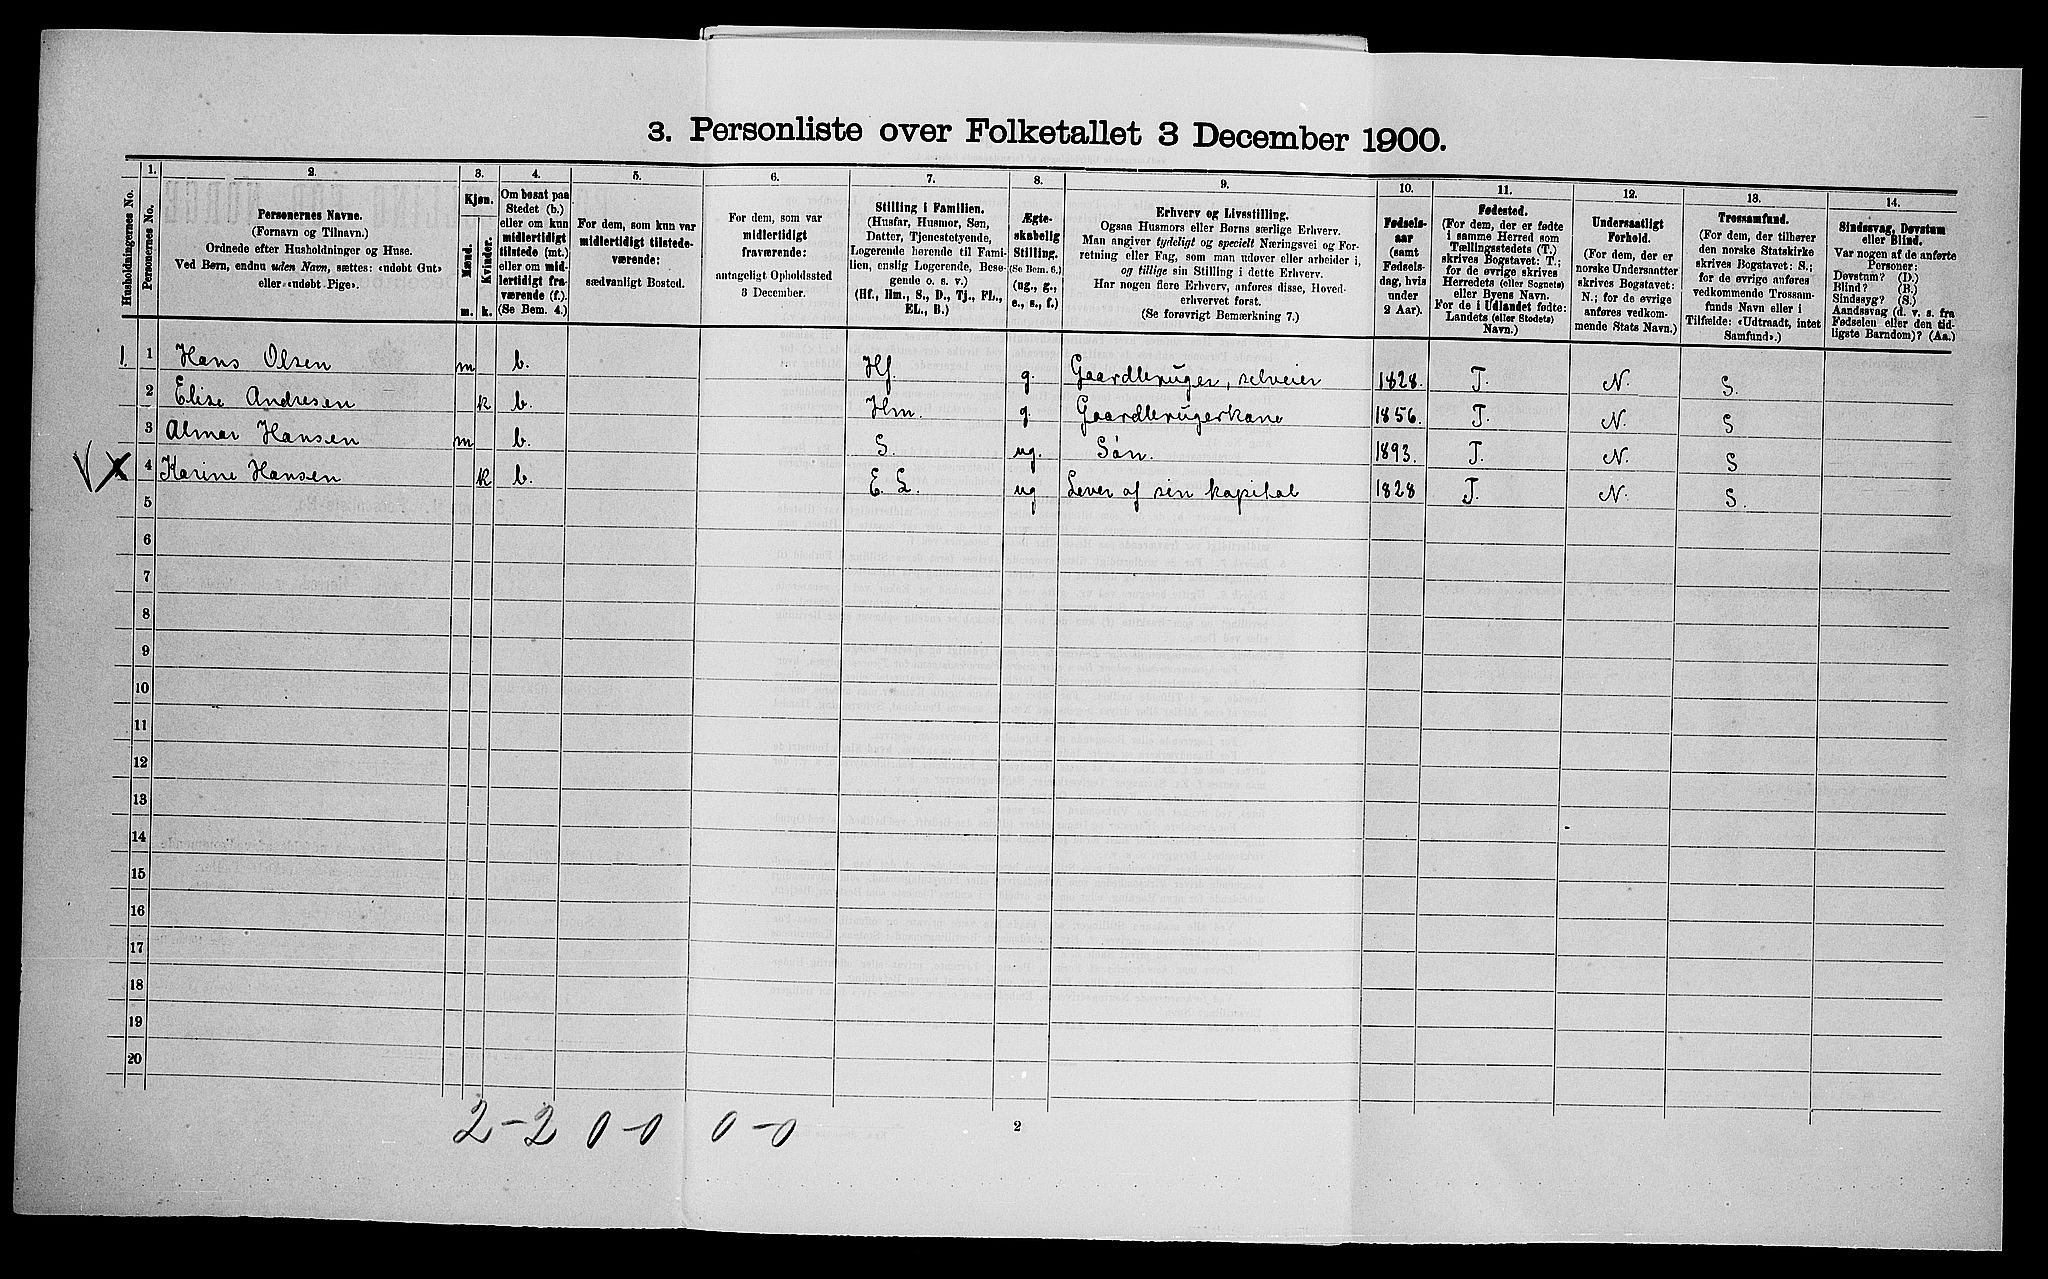 3. Personliste over Folketallet 3 December 1900.
Husholdningernes No.
1.
Personernes No.
2.
Personernes Navne.
(Fornavn og Tilnavn.)
Ordnede efter Husholdninger og Huse.
Ved Børn, endnu uden Navn, sættes: «udøbt Gut»
eller «udøbt Pige».
3.
Kjøn.
Mænd.
Kvinder.
m.
k.
4.
Om bosat paa
Stedet (b.)
eller om kun
midlertidigt
tilstede (mt.)
eller om mid-
lertidigt fra-
værende (f.).
(Se Bem. 4.)
5.
For dem, som kun var
midlertidigt tilstede-
værende:
sædvanligt Bosted.
6.
For dem, som var
midlertidigt
fraværende:
antageligt Opholdssted
3 December.
7.
Stilling i Familien.
(Husfar, Husmor, Søn,
Datter, Tjenestetyende,
Logerende hørende til Fami-
lien, enslig Logerende, Besø-
gende o. s. v.)
(Hf., Hm., S., D., Tj., FL.,
EL., B.)
8.
Ægte-
skabelig
Stilling.
(Se Bem. 6.)
(ug., g.,
e., s., f.)
9.
Erhverv og Livsstilling.
Ogsaa Husmors eller Børns særlige Erhverv.
Man angiver tydeligt og specielt Næringsvei og For-
retning eller Fag, som man udøver eller arbeider i,
og tillige sin Stilling i dette Erhverv.
Har nogen flere Erhverv, anføres disse, Hoved-
erhvervet først.
(Se forøvrigt Bemærkning 7.)
10.
Fødsels-
aar
(samt
Fødsels-
dag, hvis
under
2 Aar).
11.
Fødested.
(For dem, der er fødte
i samme Herred som
Tællingsstedets (T.)
skrives Bogstavet: T.;
for de øvrige skrives
Herredets (eller Sognets)
eller Byens Navn.
For de i Udlandet fødte:
Landets (eller Stedets)
Navn.)
12.
Undersaatligt
Forhold.
(For dem, der er
norske Undersaatter
skrives Bogstavet:
N.; for de øvrige
anføres vedkom-
mende Stats Navn.)
13.
Trossamfund.
(For dem, der tilhører
den norske Statskirke
skrives Bogstavet: S.;
for de øvrige anføres
vedkommende Trossam-
funds Navn eller i
Tilfælde: «Udtraadt, intet
Samfund».)
14.
Sindssvag, Døvstum
eller Blind.
Var nogen af de anførte
Personer:
Døvstum? (D.)
Blind? (B.)
Sindssyg? (S.)
Aandssvag (d. v. s. fra
Fødselen eller den tid-
ligste Barndom)? (Aa.)
1. 1 Hans Olsen m b. Hf. g. Gaardbruger, selveier 1828. T. N. S.
2 Elise Andresen k b. Hm. g. Gaardbrugerkone 1856. T. N. S
3 Almar Hansen m b. S. ug. Søn. 1893. T. N. S
4 Karine Hansen k b. E. L. ug Lever af sin kapital 1828 T. N. S.
5
6
7
8
9
10
11
12
13
14
15
16
17
18
19
20
2-2 0-0 0-0
2